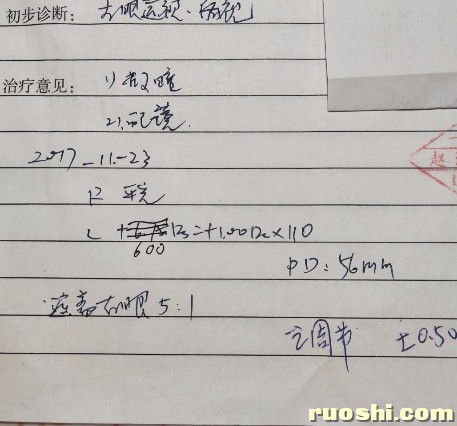 初步诊断: 左眼远视、弱视
治疗意见: 1) 散瞳
2). 配镜.
2017-11-23
R 平光
L + 600 DS = +1.00 DC × 110
PD: 56mm
遮盖右眼 5:1
云周节 ±0.50
赵
ruoshi.com